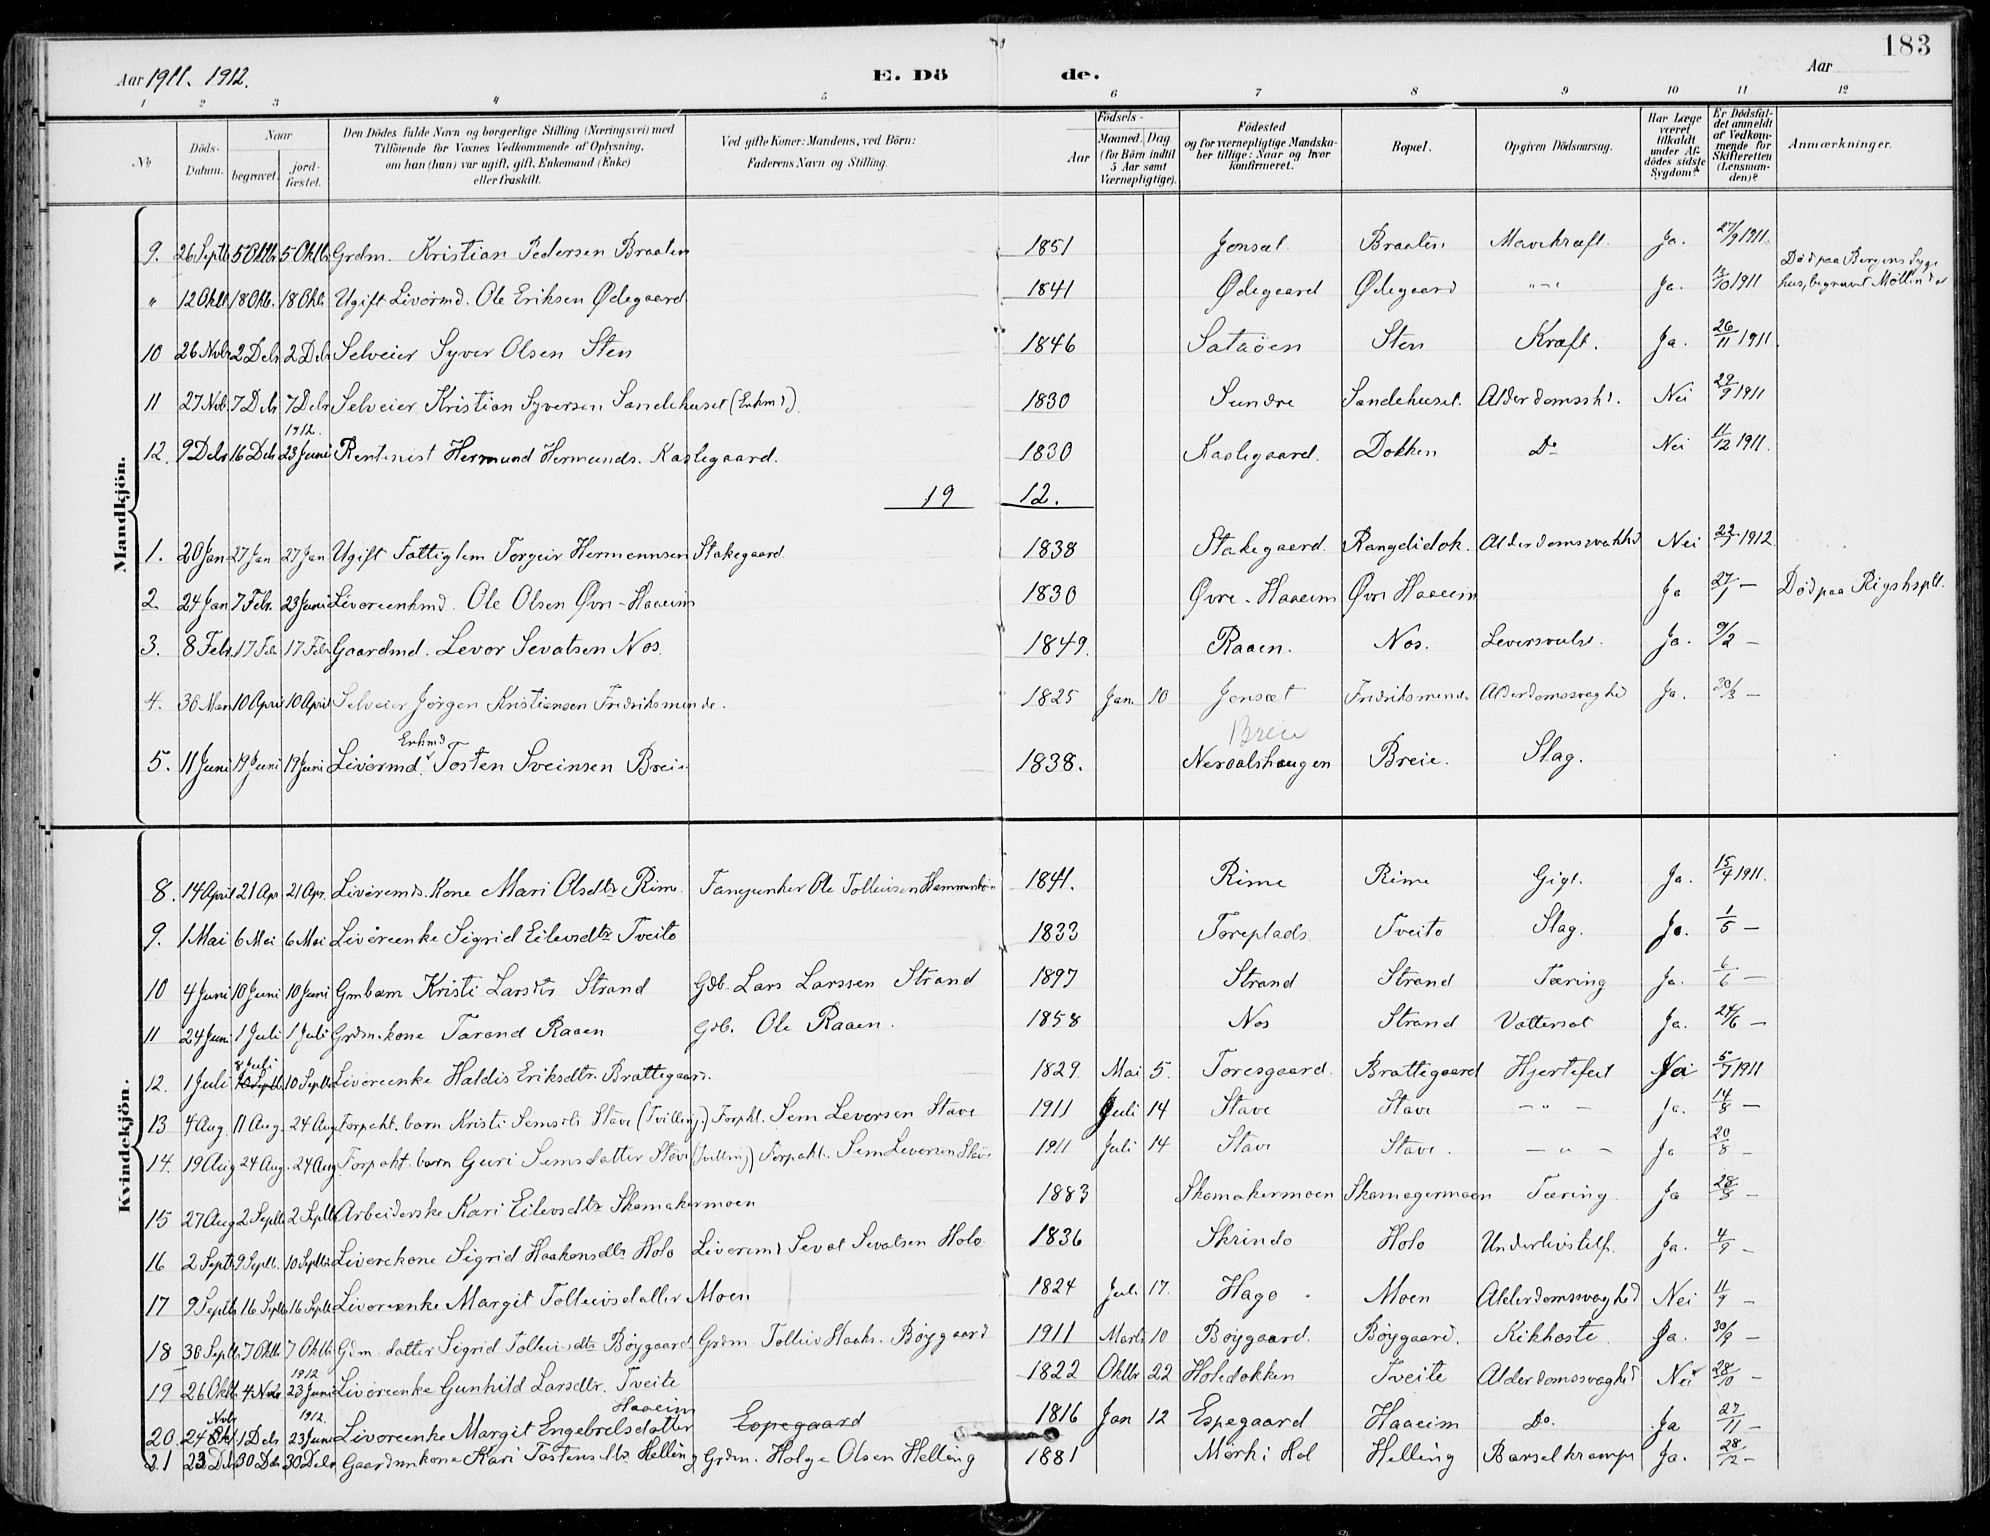 183
Aar 1911. 1912. E. Dö de. Aar
1 2 3 4 5 6 7 8 9 10 11 12
No
Döds-Datum.
Naar
begravet.
jordfæstet.
Den Dödes fulde Navn og borgerlige Stilling (Næringsvei) med
Tilföiende for Voxnes Vedkommende af Oplysning,
om han (hun) var ugift, gift, Enkemand (Enke)
eller fraskilt.
Ved gifte Koner: Mandens, ved Börn:
Faderens Navn og Stilling.
Aar
Födsels-
Maaned. Dag
(for Börn indtil
5 Aar samt
Værnepligtige).
Födested
og for værnepligtige Mandskaber tillige: Naar og hvor
konfirmeret.
Bopæl.
Opgiven Dödsaarsag.
Har Læge
været
tilkaldt
under Afdödes sidste
Sygdom?
Er Dödsfaldet anmeldt
af Vedkommende for
Skifteretten
(Lensmanden)?
Anmærkninger.
Mandkjön.
9. 26 Septb 5 Oktb 5 Oktb Grdm. Kristian Pedersen Braaten 1851 Jonset Braaten Mavekræft. Ja. 27/9 1911.
" 12 Oktb 18 Okb. 18 Okb. Ugift Livörmd. Ole Eriksen Ødegaard 1841 Ødegaard Ødegaard "-" Ja. 1911 Död paa Bergens Sygehus, begravet Möllendal
10 26 Novbr 2 Debr 2 Debr Selveier Syver Olsen Sten 1846 Sataöen Sten Kræft. Ja. 26/11 1911.
11 27 Nvb. 7 Debr 7 Debr Selveier Kristian Syversen Sandehuset (Enkmd). 1830 Sundre Sandehuset. Alderdomssv. Nei 29/9 1911
12. 9 Debr 16 Debr 1912. 23 Juni Rentenist Hermund Hermunds. Kaslegaard. 1830 Kaslegaard. Dokken Do Nei 11/12 1911.
19 12.
1. 20 Jan 27 Jan 27 Jan Ugift Fattiglem Torgeir Hermennsen Stakegaard 1838 Stakegaard. Rangdidok. Alderdomssvakhd Nei 22/1 1912.
2 24 Jan 7 Febr. 23 Juni Livöreenkmd. Ole Olsen Øvre-Haaeim 1830 Øvre-Haaeim Øvre Haaeim Ja 27/1 — Död paa Rigshspit.
3. 8 Febr. 17 Febr 17 Febr Gaardmd. Levor Sevatsen Nos. 1849. Raaen. Nos. Leversvulst. Ja. 9/2 —
4. 30 Mars 10 April 10 April Selveier Jörgen Kristiansen Fredriksminde. 1825 Jan. 10 Jonset Fredriksminde Alderdomssvaghed Ja. 30/3 —
5. 11 Juni 19 Juni 19 Juni Livörmd. Enkmd Tosten Sveinsen Breie 1838. Breie Nerdalshaugen Breie. Slag.
Kvindekjön.
8. 14 April 21 Apr. 21 Apr. Livöremds. Kone Mari Olsdtr Rime. Fanejunker Ole Tolleivsen Hammersbön 1841. Rime Rime Gigt. Ja. 15/4 1911.
9. 1 Mai 6 Mai 6 Mai Livöreenke Sigrid Eilevsdtr Tveito 1833 Toreplads Tveito Slag. Ja. 1/5 —
10 4 Juni 10 Juni 10 Juni Gmbarn Kristi Larsdtr Strand Gdb. Lars Larssen Strand 1897 Strand Strand Tæring Ja. 6/6 —
11 24 Juni 1 Juli 1 Juli Grdm.kone Tarand Raaen Gdb. Ole Raaen. 1858 Nos Strand Vattersot Ja. 24/6 —
12. 1 Juli 8 Juli 10 Septb. 10 Septb Livöreenke Haldis Eriksdtr. Brattegaard. 1829. Mai 5. Toresgaard. Brattegaard Hjertefeil Ja 5/7 1911
13 4 Aug. 11 Aug. 24 Aug Forpakt. barn Kristi Semsdtr Stave (Tvilling.) Forpkt. Sem Leversen Stave 1911 Juli 14 Stave Stave — " — Ja. 14/8 —
14. 19 Aug 24 Aug. 24 Aug Forpakt. barn Guri Semsdatter Stave (Tvilling) Forpakt. Sem Leversen Stave 1911 Juli 14 Stave Stave. — " — Ja 20/8 —
15 27 Aug 2 Septb 2 Septb Arbeiderske Kari Eilevsdtr Skomakermoen 1883 Skomakermoen Skomagermoen Tæring Ja 28/8 —
16 2 Septb 9 Septb. 10 Septbr Livörekone Sigrid Haakensdtr Holo Livöremd Sevat Sevatsen Holo 1836 Skrindo Holo Underlivstilf. Ja. 4/9 —
17 9 Septb 16 Septb 16 Septb Livöreenke Margit Tolleivsdatter Moen 1824 Juli 17. Hago Moen Alderdomssvaghed Nei 11/9 —
18 30 Septb 7 Oktb 7 Oktb Gdm. datter Sigrid Tolleivsdtr Böygaard Grdm. Tolleiv Haaks. Böygaard 1911 Marts 10 Böygaard. Böygaard. Kikhoste Ja. 30/9 —
19 26 Oktb. 4 Nvbr 1912 23 Juni Livöreenke Gunhild Larsdtr. Tveite 1822 Oktbr 22 Holedokken Tveite Alderdomssvaghed Nei 28/10 —
20. 24 Nvbr Okt. 1 Debr 1912. 23 Juni Livöreenke Margit Engebretsdatter Haaeim Espegaard 1816 Jan 12 Espegaard Haaeim Do. Ja 27/11 —
21 23 Debr 30 Debr 30 Debr Gaardmkone Kari Tostensdtr Helling Grdm. Holge Olsen Helling 1881 Mörk i Hol Helling Barselkrampe Ja. 28/12 —